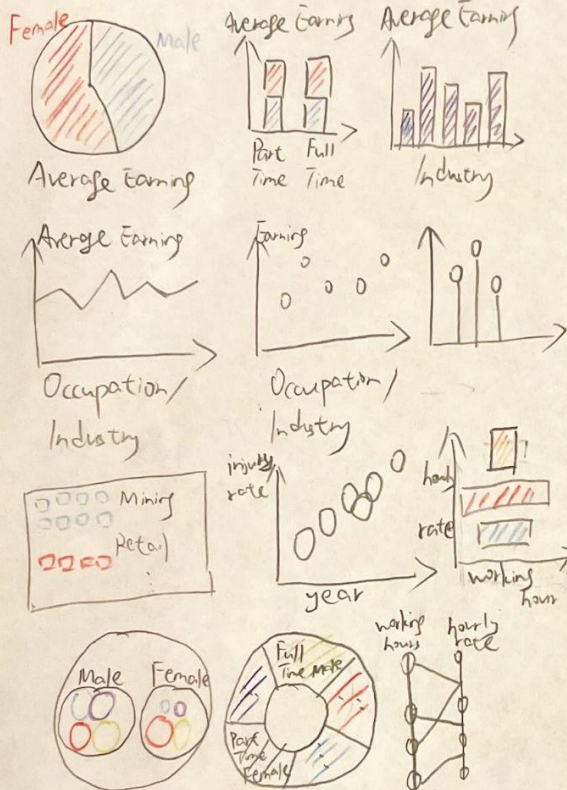 Female
Male
Average Earning
Average Earning
Part Time
Full Time
Average Earning
Industry
Average Earning
Occupation/
Industry
Earning
Occupation/
Industry
Mining
Retail
injury
rate
year
hourly
rate
working
hour
Male
Female
Full
Time
Male
Part
Time
Female
working
hours
hourly
rate